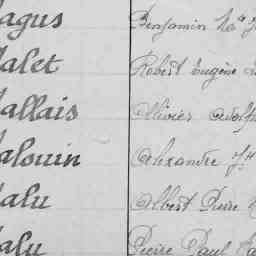 agus Benjamin
alet Robert Eugène
allais Olivier Adolf
alouin Alexandre Jh
alu Albert Pierre
alu Pierre Paul